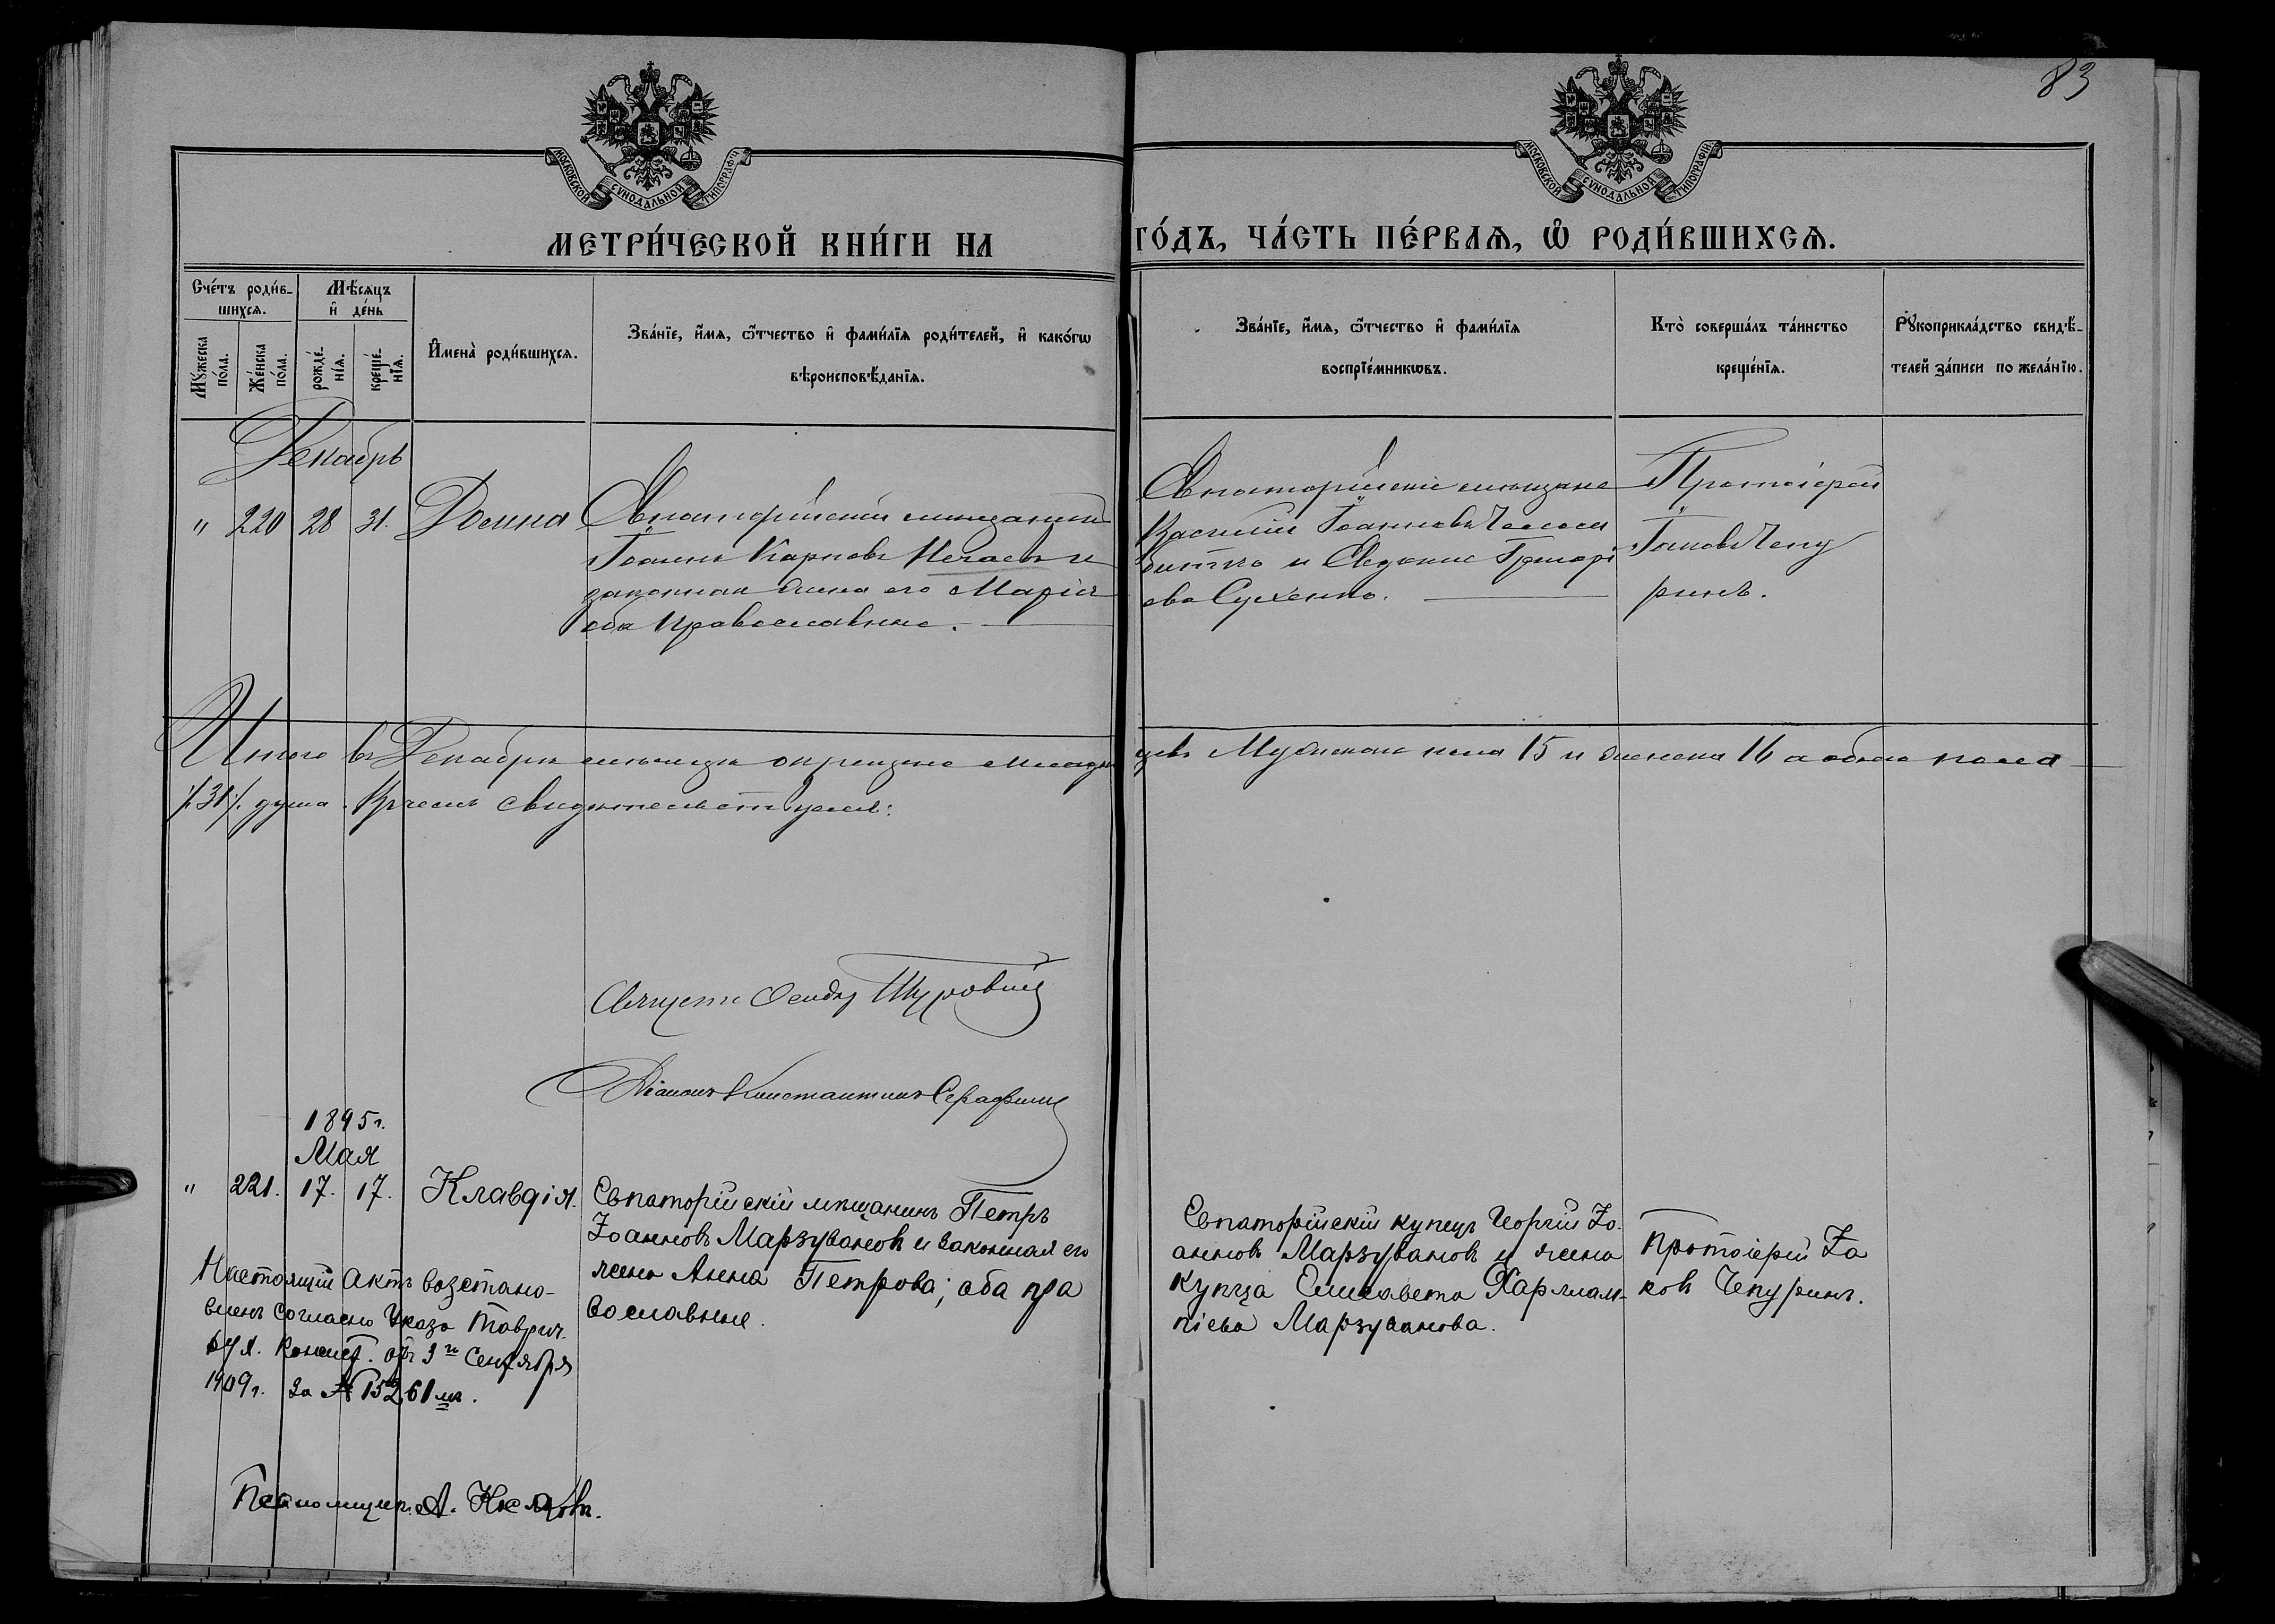 83
МОСКОВСКОЙ СѴНОДАЛЬНОЙ ТИПОГРАФІИ
МОСКОВСКОЙ СѴНОДАЛЬНОЙ ТИПОГРАФІИ
МЕТРИ́ЧЕСКОЙ КНИ́ГИ НА
ГО́ДЪ, ЧА́СТЬ ПЕ́РВАѦ, Ѽ РОДИ́ВШИХСѦ.
Сче́тъ роди́в-
шихсѧ.
Мꙋ́жеска
по́ла.
Же́нска
по́ла.
Мѣ́сѧцъ
и҆ де́нь
рожде́-
нїѧ.
креще́-
нїѧ.
И҆мена̀ роди́вшихсѧ.
Зва́нїе, и҆́мѧ, ѻ҆́тчество и҆ фами́лїѧ роди́телей, и҆ како́гѡ
вѣроисповѣ́данїѧ.
Зва́нїе, и҆́мѧ, ѻ҆́тчество и҆ фами́лїѧ
воспрїе́мникѡвъ.
Кто̀ соверша́лъ та́инство
креще́нїѧ.
Рꙋкоприкла́дство свидѣ́-
телей за́писи по жела́нїю.
Декабрь
" 220 28 31. Домна
Евпаторійскій мещанинъ
Іоаннъ Карповъ Нечаевъ и
законная жена его Марія
оба православные.
Евпаторійскіе мещане
Василій Іоанновъ
и Евдокія Григорі
ева Сухенко.
Протоіерей
Іаковъ Чепу
ринъ.
Итого въ Декабрѣ месяцѣ окрещено младен
цевъ Мужеска пола 15 и женска 16 а обоего пола
/:31:/ душа. Въ чемъ свидѣтельствуемъ:
Священ Туровскій
Діаконъ Константинъ Серафимъ
1895 г.
Мая
" 221. 17. 17. Клавдія.
Евпаторійскій мѣщанинъ Петръ
Іоанновъ Марзувановъ и законная его
жена Анна Петрова; оба пра
вославные.
Евпаторійскій купецъ Георгій Іо-
анновъ Марзувановъ и жена
купца Елисавета Харлам-
піева Марзуванова.
Протоіерей Іа
ковъ Чепуринъ.
Настоящій актъ возстано-
вленъ согласно Указа Таврич.
Дух. Консист. отъ 3го Сентября
1909 г. за № 15261мъ.
Псаломщикъ А.